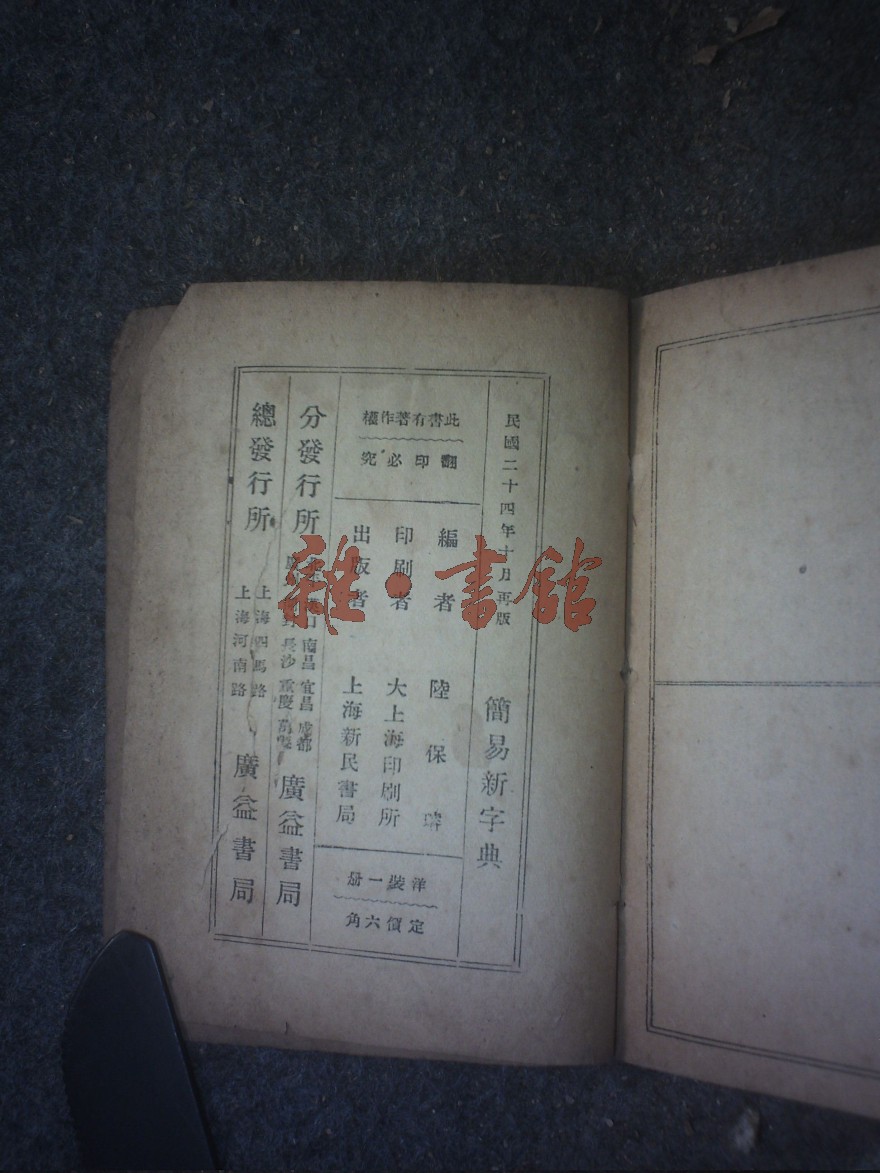 民國二十四年十月再版
簡易新字典
此書有著作權
翻印必究
編者 陸保璿
印刷者 大上海印刷所
出版者 上海新民書局
洋裝一冊
定價六角
分發行所
南昌 宜昌 成都
長沙 重慶
廣益書局
總發行所
上海四馬路
上海河南路
廣益書局
雜·書館